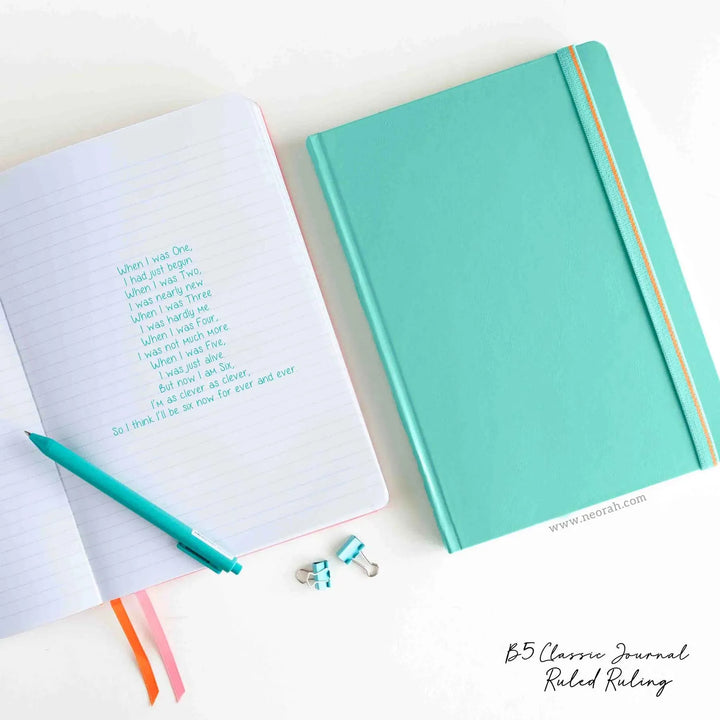 When I was One,
I had just begun
When I was Two,
I was nearly new
When I was Three
I was hardly me
When I was Four,
I was not much more
When I was Five,
I was just alive
But now I am Six,
I'm as clever as clever,
So I think I'll be six now for ever and ever
www.neorah.com
B5 Classic Journal
Ruled Ruling